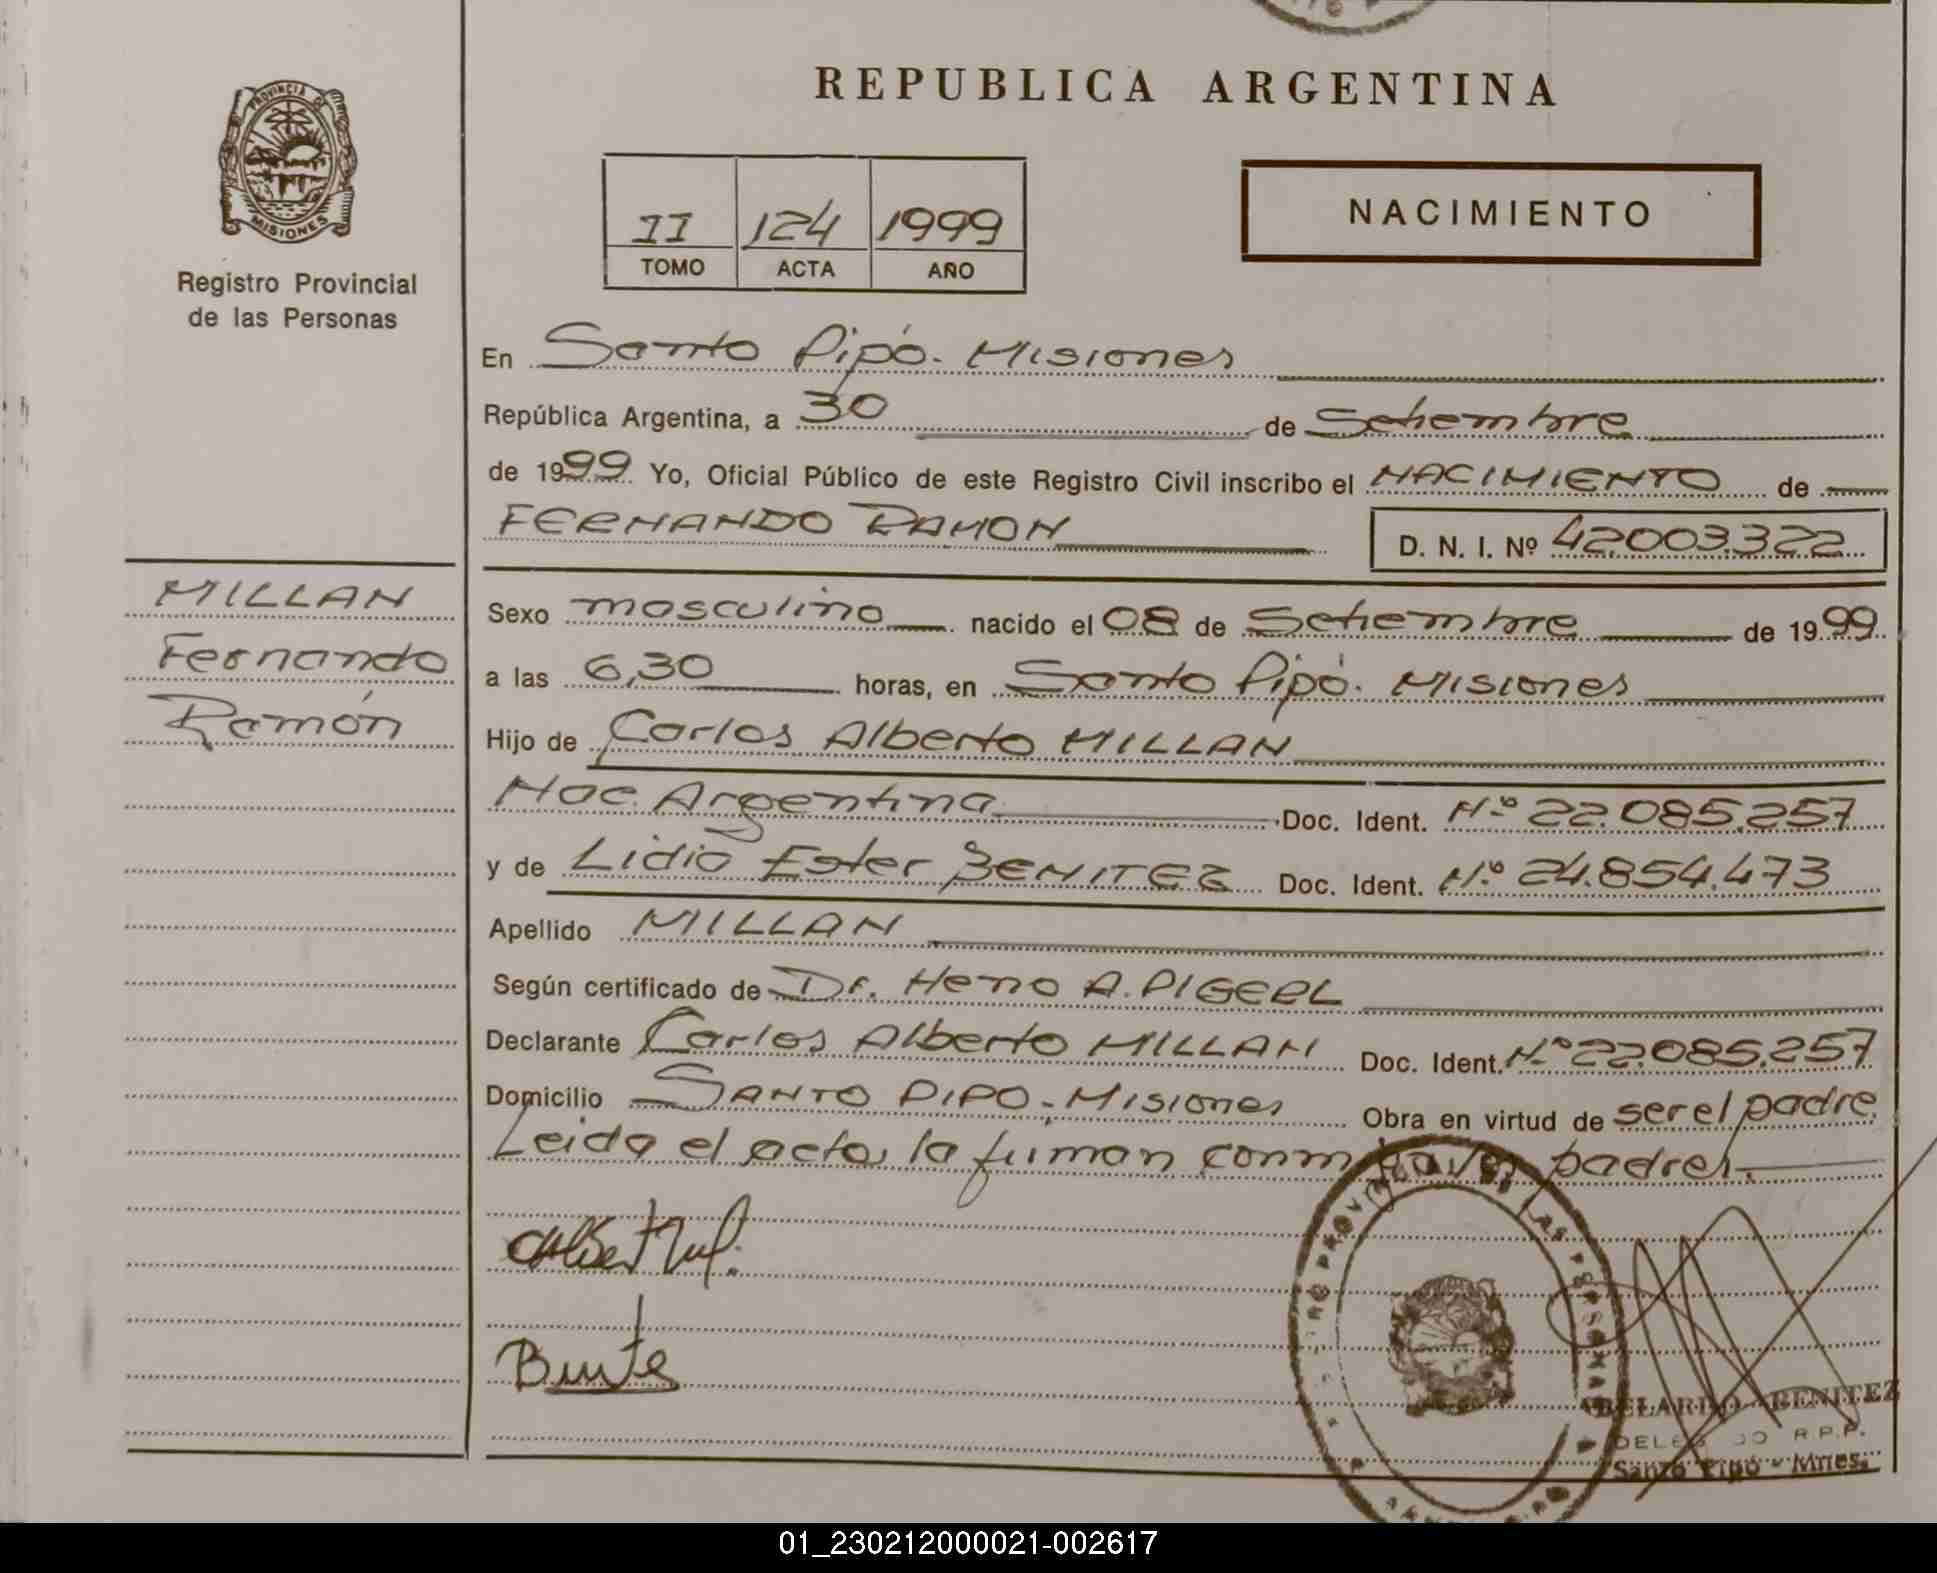 REPUBLICA ARGENTINA
PROVINCIA DE
MISIONES
Registro Provincial
de las Personas
II 124 1999
TOMO ACTA AÑO
NACIMIENTO
En Santo Pipó. Misiones
República Argentina, a 30 de Setiembre
de 1999 Yo, Oficial Público de este Registro Civil inscribo el NACIMIENTO de
FERNANDO RAMON D. N. I. Nº 42.003.322
MILLAN
Fernando
Ramón
Sexo masculino nacido el 08 de Setiembre de 1999
a las 6,30 horas, en Santo Pipó. Misiones
Hijo de Carlos Alberto MILLAN
Nac. Argentina Doc. Ident. Nº 22.085.257
y de Lidia Ester BENITEZ Doc. Ident. Nº 24.854.473
Apellido MILLAN
Según certificado de Dr. Heno A. PIGERL
Declarante Carlos Alberto MILLAN Doc. Ident. Nº 22.085.257
Domicilio SANTO PIPO - Misiones Obra en virtud de ser el padre
Leida el acta, la firman conmigo los padres.
BELARDO BENITEZ
R.P.P.
Santo Pipó - Mnes.
01_230212000021-002617